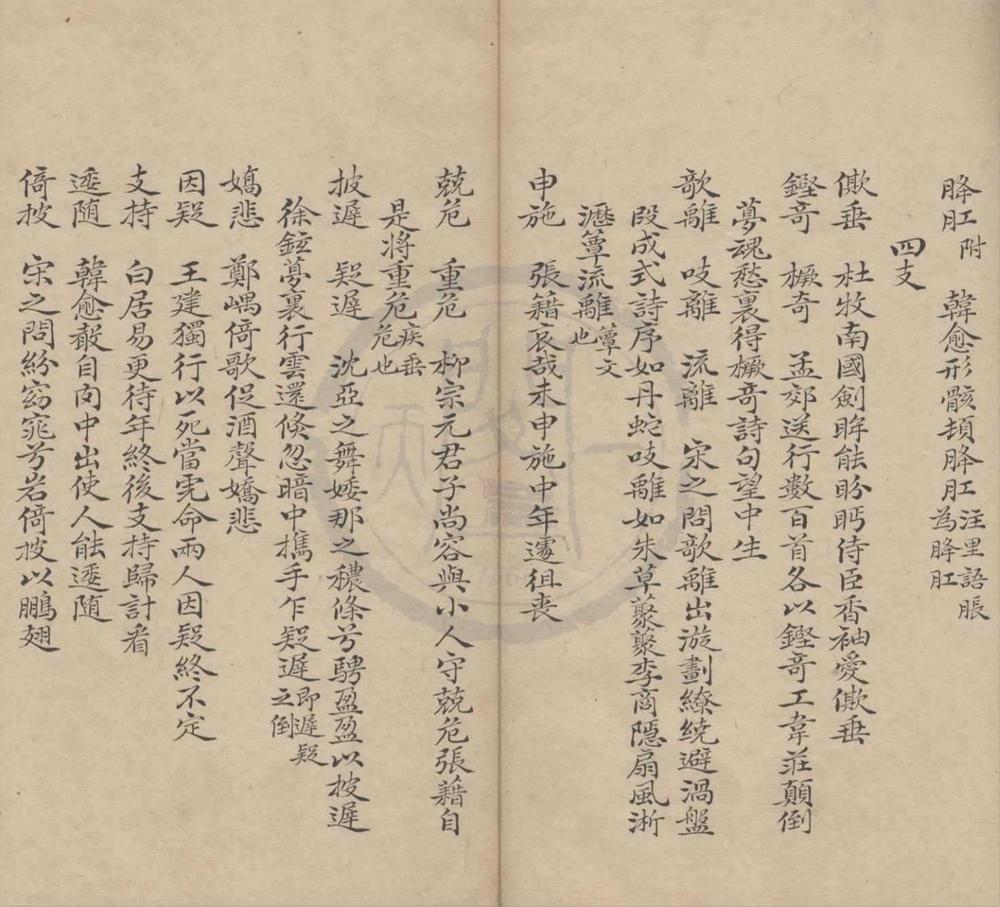 胮肛附　韓愈形骸頓胮肛注里語脹為胮肛
四支
僛垂　杜牧南國劍眸能盼眄侍臣香袖愛僛垂
鏗奇　橛奇　孟郊送行數百首各以鏗奇工韋莊顛倒
夢魂愁裏得橛奇詩句望中生
歌離　吱離　流離　宋之問歌離出漩劃繚繞避渦盤
段成式詩序如丹蛇吱離如朱草蔉蔉李商隱扇風淅
瀝簟流離也簟文
申施　張籍哀哉未申施中年遽徂喪
兢危　重危　柳宗元君子尚容與小人守兢危張籍自
是將重危疾垂危也
披遲　疑遲　沈亞之舞婑那之穠條兮騁盈盈以披遲
徐鉉夢裏行雲還倏忽暗中攜手乍疑遲即遲疑之倒
嬌悲　鄭嵎倚歌促酒聲嬌悲
因疑　王建獨行以死當虎命兩人因疑終不定
支持　白居易更待年終後支持歸計看
逶隨　韓愈縠自囪中出使人能逶隨
倚披　宋之問紛窈窕兮岩倚披以鵬翅